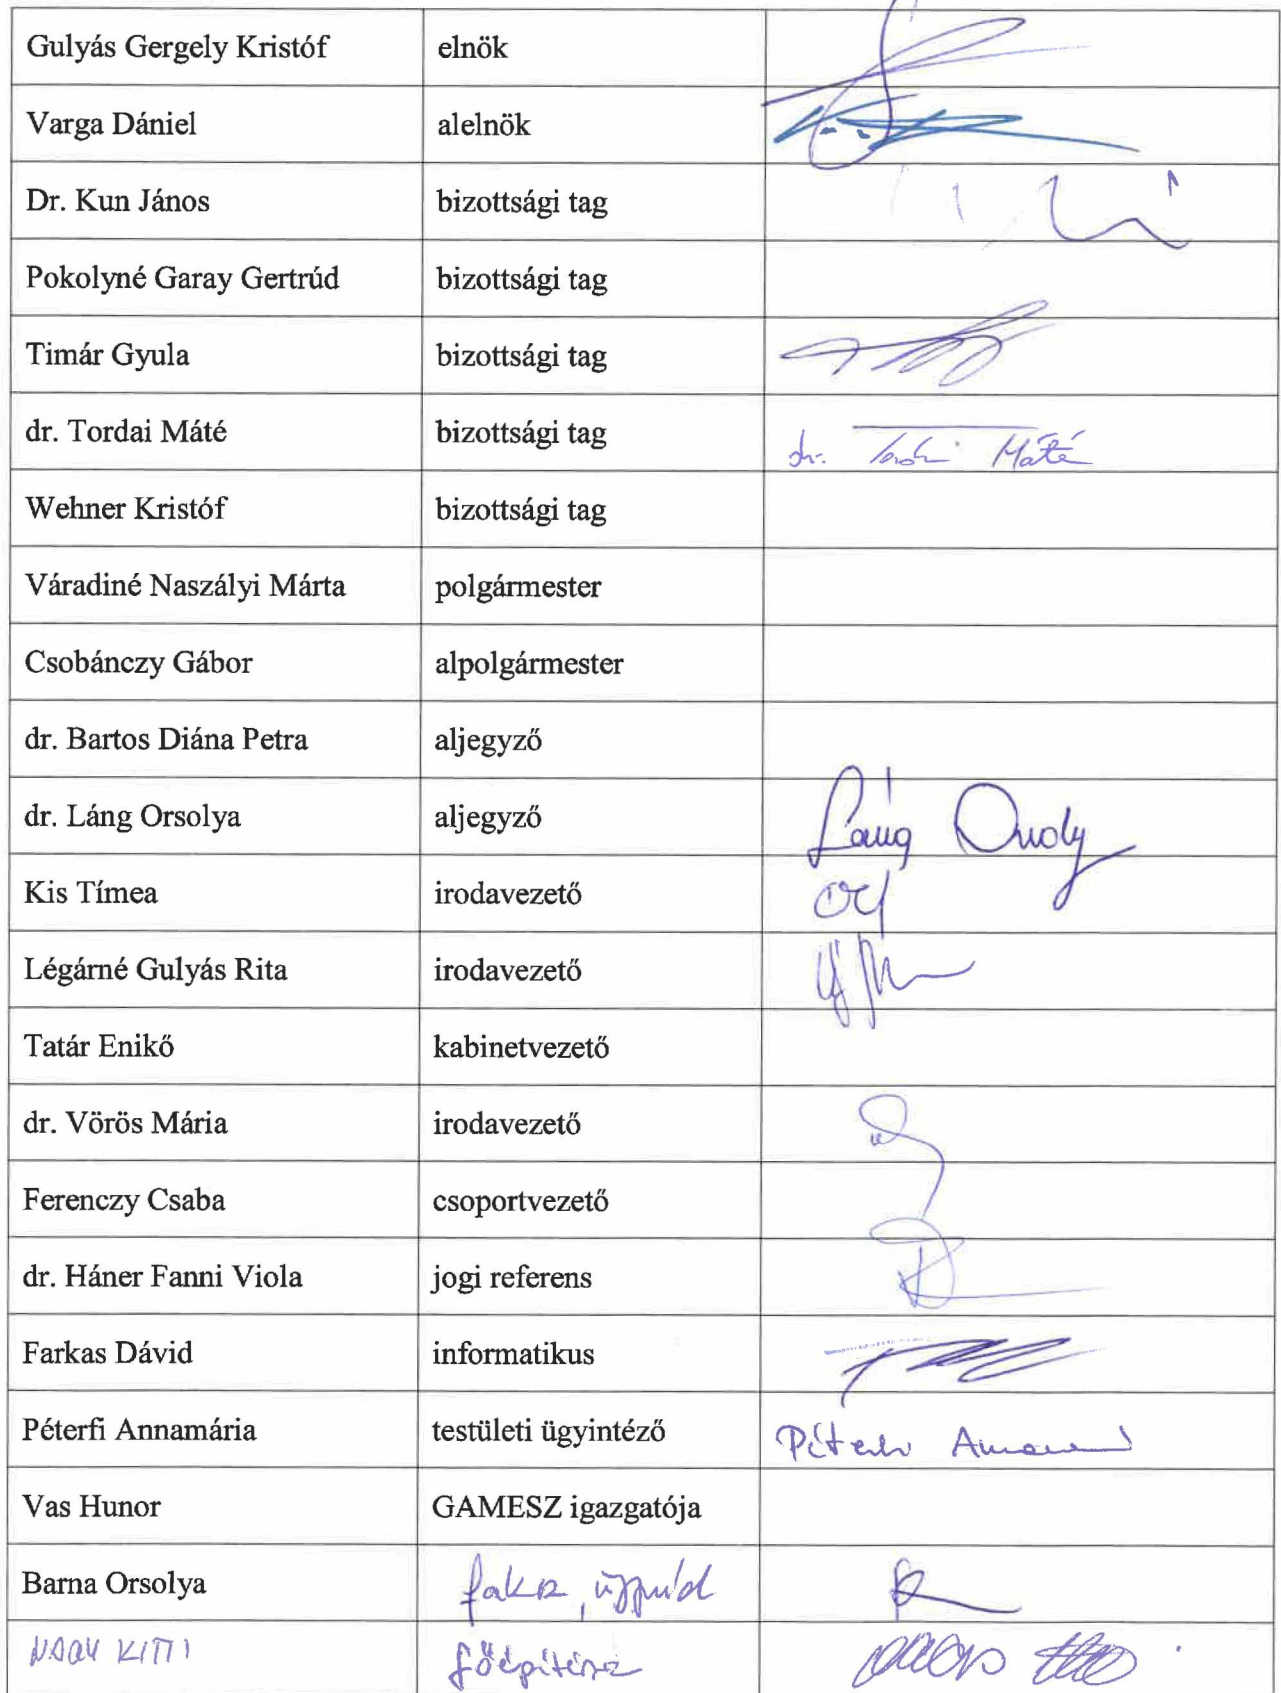 Gulyás Gergely Kristóf elnök
Varga Dániel alelnök
Dr. Kun János bizottsági tag
Pokolyné Garay Gertrúd bizottsági tag
Timár Gyula bizottsági tag
dr. Tordai Máté bizottsági tag dr. Tordai Máté
Wehner Kristóf bizottsági tag
Váradiné Naszályi Márta polgármester
Csobánczy Gábor alpolgármester
dr. Bartos Diána Petra aljegyző
dr. Láng Orsolya aljegyző Láng Orsolya
Kis Tímea irodavezető
Légárné Gulyás Rita irodavezető
Tatár Enikő kabinetvezető
dr. Vörös Mária irodavezető
Ferenczy Csaba csoportvezető
dr. Háner Fanni Viola jogi referens
Farkas Dávid informatikus
Péterfi Annamária testületi ügyintéző Péterfi
Vas Hunor GAMESZ igazgatója
Barna Orsolya
NAGY KITTI főépítész